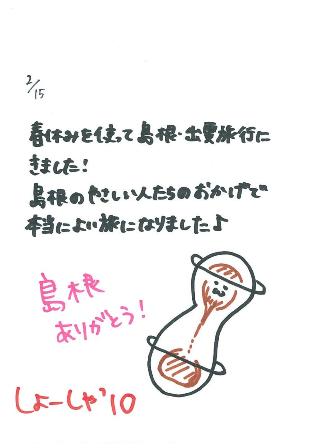 2/15
春休みを使って島根・出雲旅行に
きました!
島根のやさしい人たちのおかげで
本当によい旅になりました♪
島根
ありがとう!
しょーしゃ'10